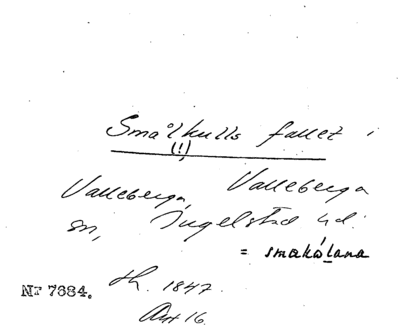 Smålkulls fallet i
(!)
Valleberga, Valleberga
sn, Ingelstad hd.
= smakálana
Nr 7884.
th. 1847.
Art 16.